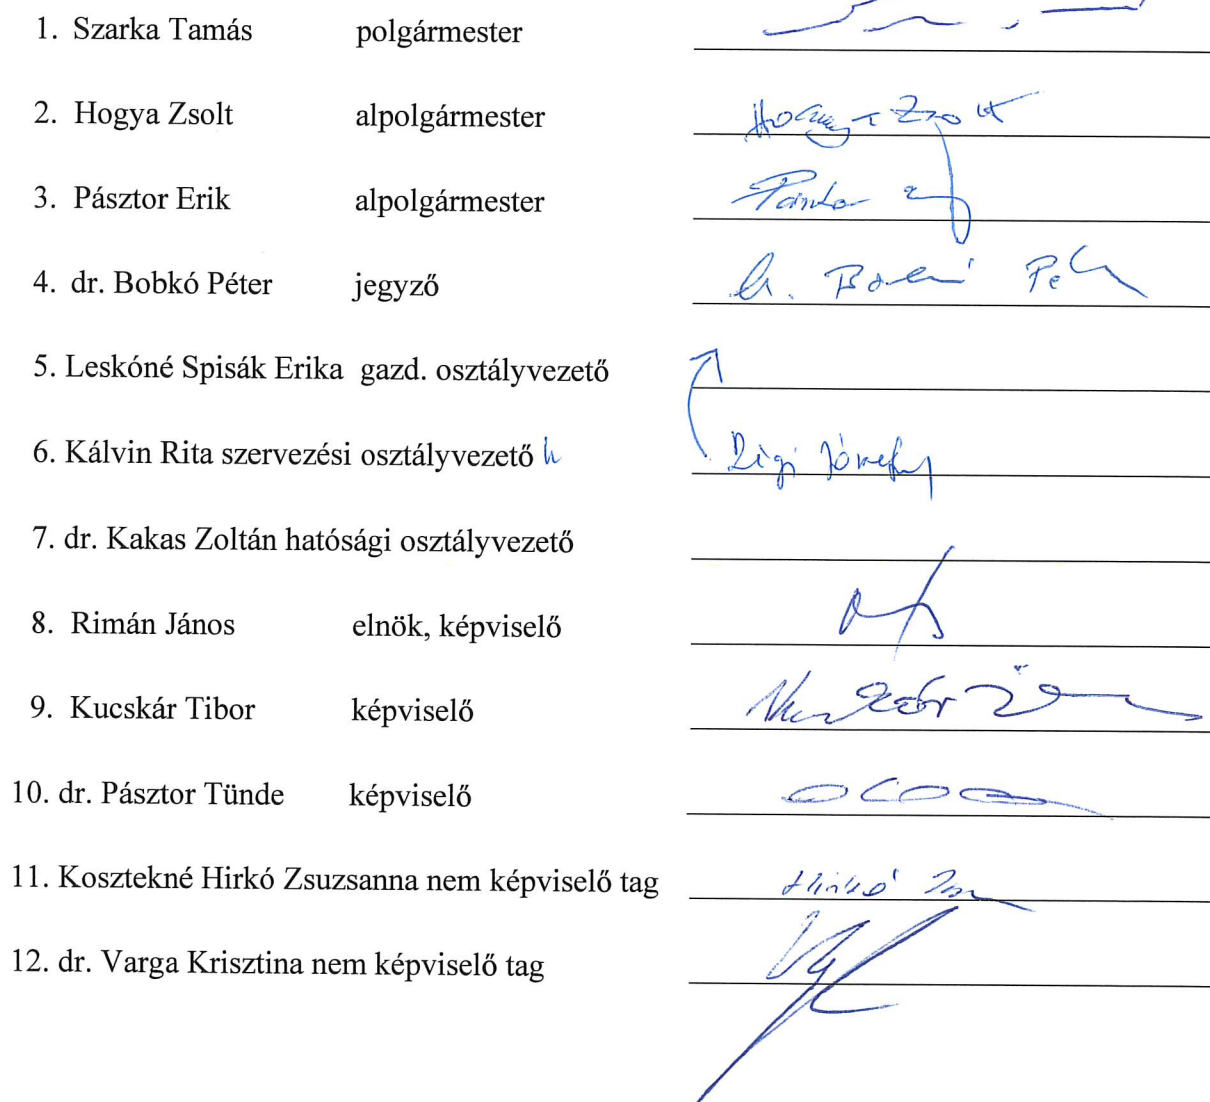 1. Szarka Tamás polgármester
2. Hogya Zsolt alpolgármester Hogya Zsolt
3. Pásztor Erik alpolgármester Pásztor
4. dr. Bobkó Péter jegyző dr. Bobkó Pé
5. Leskóné Spisák Erika gazd. osztályvezető
6. Kálvin Rita szervezési osztályvezető h
7. dr. Kakas Zoltán hatósági osztályvezető
8. Rimán János elnök, képviselő
9. Kucskár Tibor képviselő
10. dr. Pásztor Tünde képviselő
11. Kosztekné Hirkó Zsuzsanna nem képviselő tag Hirkó
12. dr. Varga Krisztina nem képviselő tag